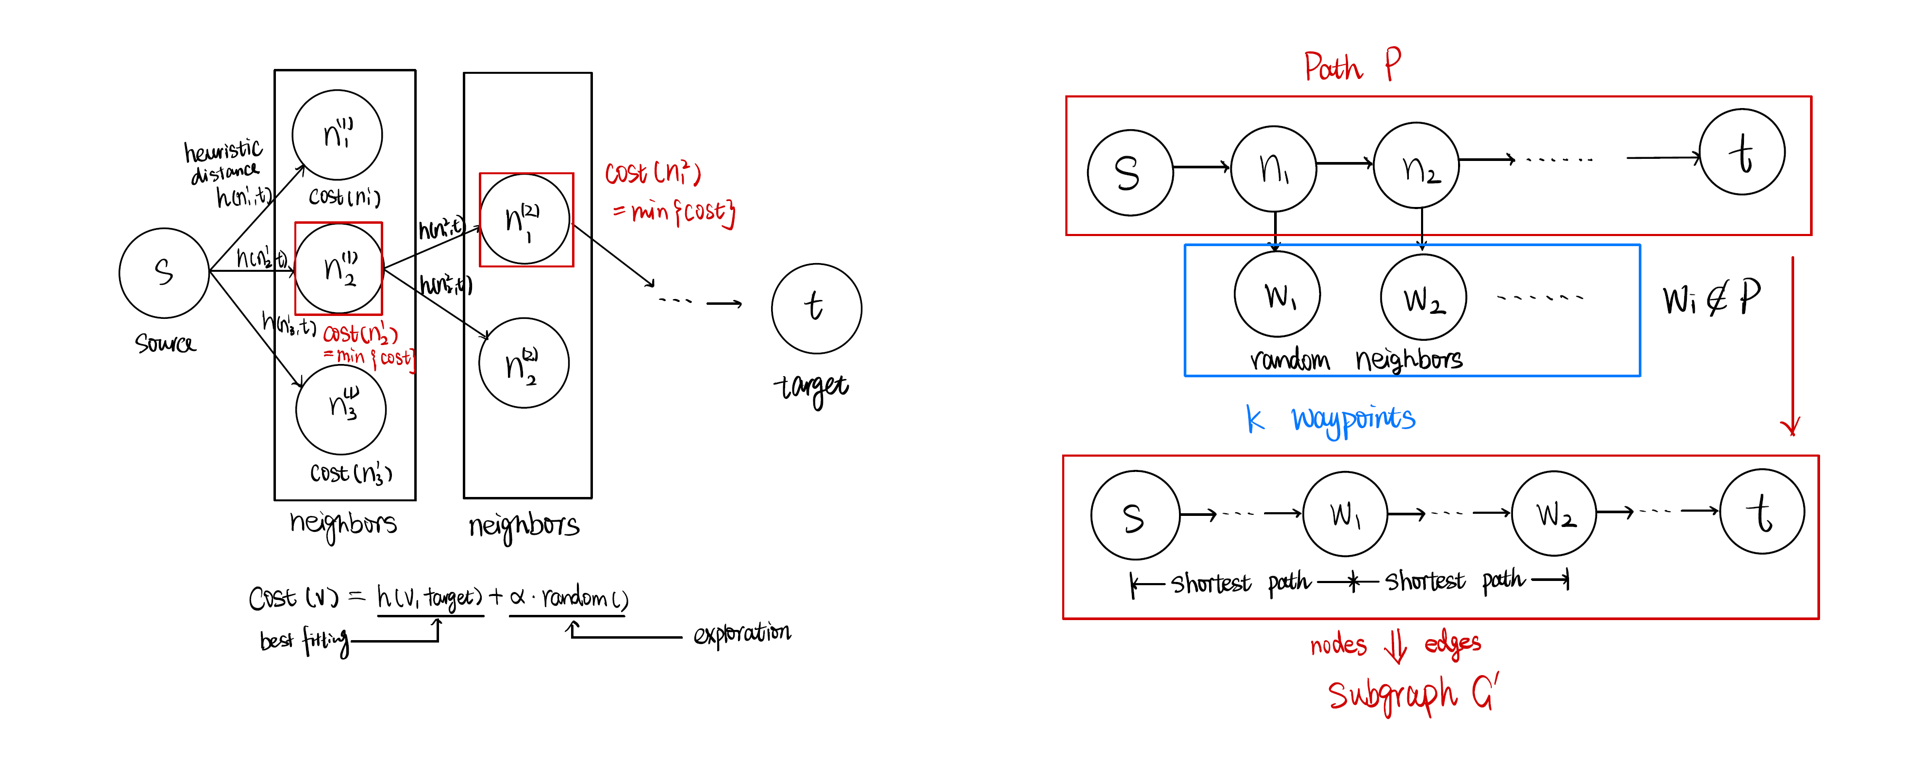 n₁⁽¹⁾
heuristic
distance
h(n₁¹,t)
cost(n₁¹)
S
source
h(n₂¹,t)
n₂⁽¹⁾
h(n₃¹,t)
cost(n₂¹)
=min{cost}
n₃⁽¹⁾
cost(n₃¹)
neighbors
h(n₁²,t)
n₁⁽²⁾
h(n₂²,t)
n₂⁽²⁾
neighbors
cost(n₁²)
=min{cost}
......
t
target
Cost(v) = h(v, target) + α · random()
best fitting
exploration
Path P
S n₁ n₂ ...... t
w₁ w₂ ......
random neighbors
Wi ∉ P
k waypoints
S ... w₁ ... w₂ ... t
shortest path shortest path
nodes ⇓ edges
Subgraph G'